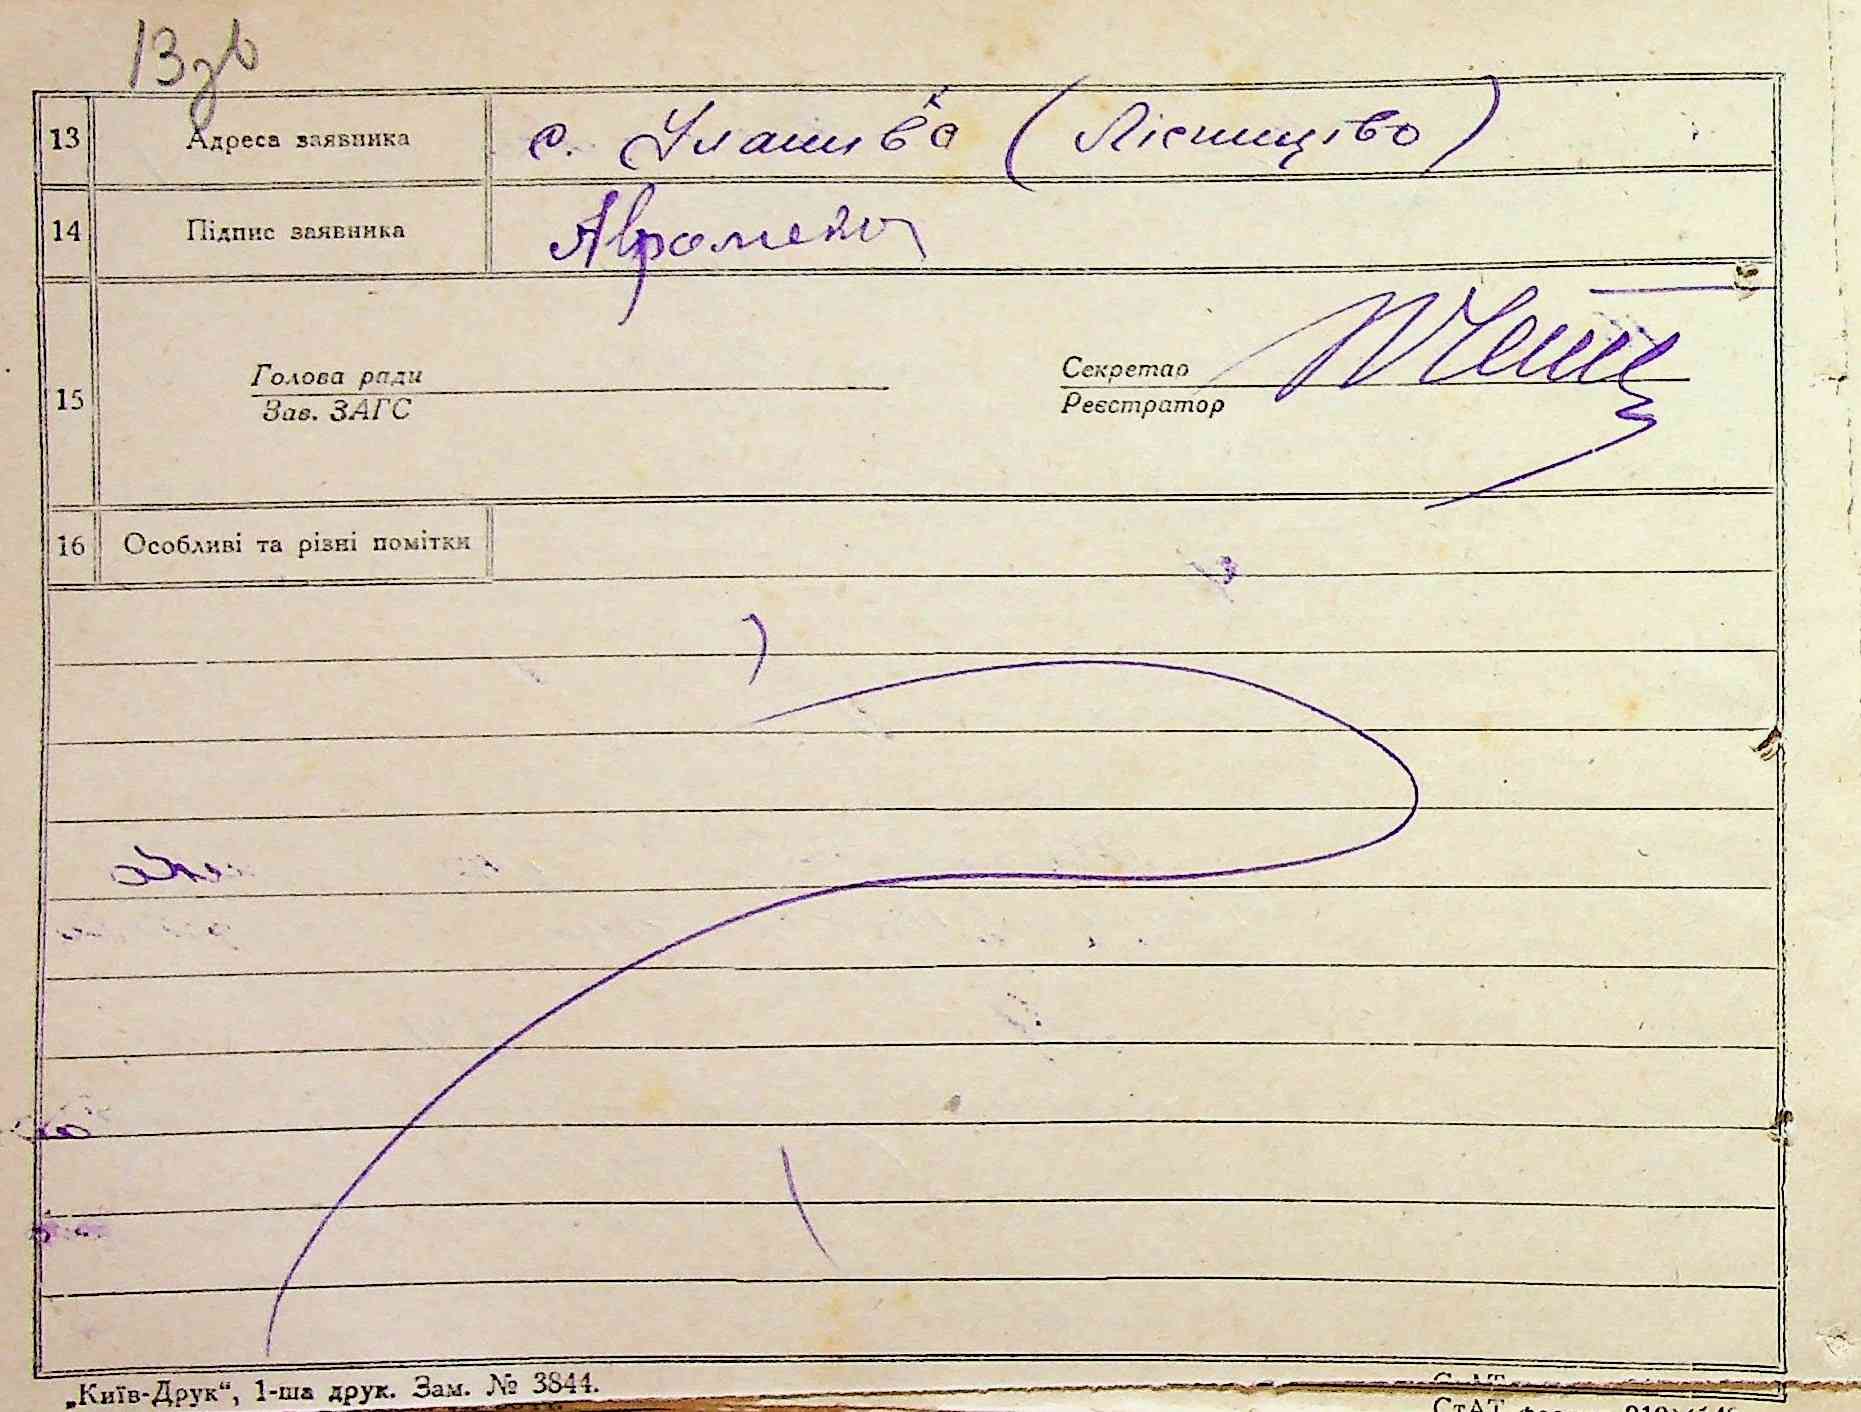 13зв
13 Адреса заявника с. Уланівка (Лісництво)
14 Підпис заявника
15 Голова ради Секретар
Зав. ЗАГС Реєстратор
16 Особливі та різні помітки
„Київ-Друк“, 1-ша друк. Зам. № 3844.
СтАТ